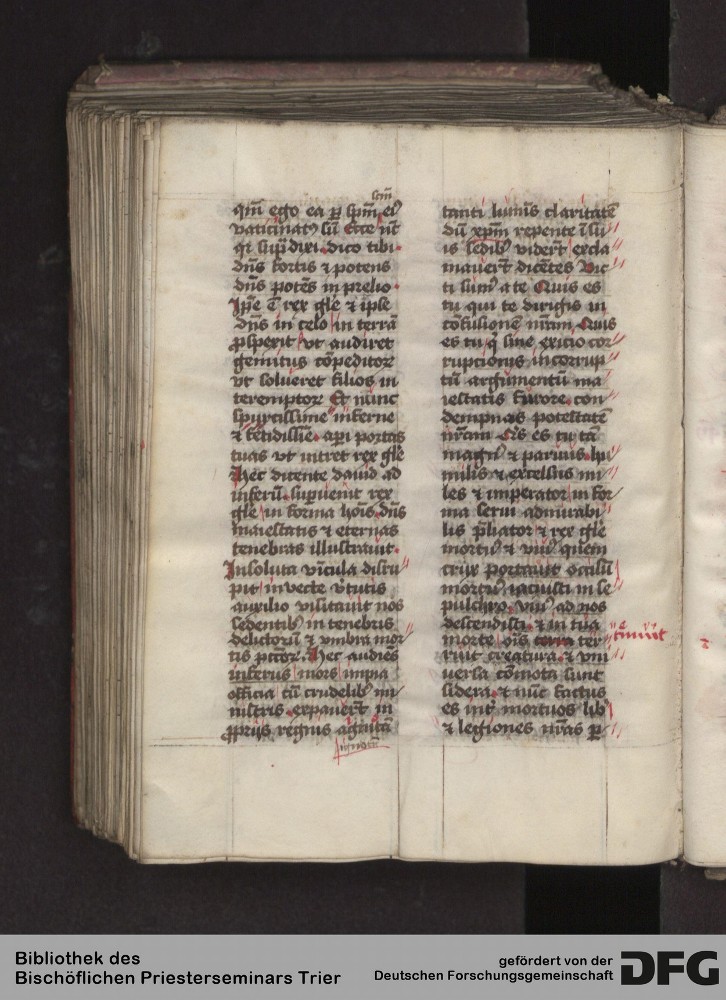 scm̄
qm̄ ego ea p̱ spm̄ eiꝰ
vaticinatꝰ sū Et ecce nūc
q̄ supͣdixi dico tibi
dn̄s fortis ⁊ potens
dn̄s potēs in prelio
Ip̄e ē rex gl̄e ⁊ ip̄se
dn̄s in celo in terrā
ꝓspexit vt audiret
gemitus cōpeditoꝝ
vt solueret filios in
teremptoꝝ Et nunc
spurcissime inferne
⁊ fetidissīe ap̱i portas
tuas vt intret rex gl̄e
Hec dicente dauid ad
inferū superuenit rex
gl̄e in forma hoīs dn̄s
maiestatis ⁊ eternas
tenebras illustrauit
Insoluta vīcula disru
pit inuecte v̄tutis
auxilio visitauit nos
sedentibꝰ in tenebris
delictorū ⁊ vmbra mor
tis pctōꝝ Hec audiēs
inferus mors impia
officia cū crudelibꝰ mi
nistris expauert̄ in
ꝓprijs regnis agnitā
tanti lumīs claritatē
dū xpm̄ repente ī su
is sedibꝰ vidert̄ excla
mauert̄ dicētes Vic
ti sumꝰ a te Quis es
tu qui te dirigis in
cōfusionē nr̄am Quis
es tu q̄ sine exicio cor
rupcionis incorrup
tū argumentū ma
iestatis furore con
dempnas potestatē
nr̄am Q̄s es tu tā
magnꝰ ⁊ paruus hu
milis ⁊ excelsus mi
les ⁊ imperator in for
ma serui admirabi
lis p̄liator ⁊ rex gl̄e
mortuꝰ ⁊ viuꝰ quem
crux portauit occisū
mortuꝰ iacuisti in se
pulchro viuꝰ ad nos
descendisti ⁊ in tua
morte oīs terra ter
ruit creatura ⁊ vni
uersa cōmota sunt
sidera ⁊ nūc factus
es int̄ mortuos libꝰ
⁊ legiones nr̄as p̱
Bibliothek des
Bischöflichen Priesterseminars Trier
gefördert von der
Deutschen Forschungsgemeinschaft
DFG